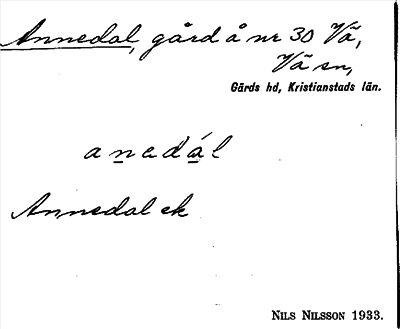 Annedal, gård å nr 30 Vä,
Vä sn,
Gärds hd, Kristianstads län.
a n e d á l
Annedal ek
NILS NILSSON 1933.